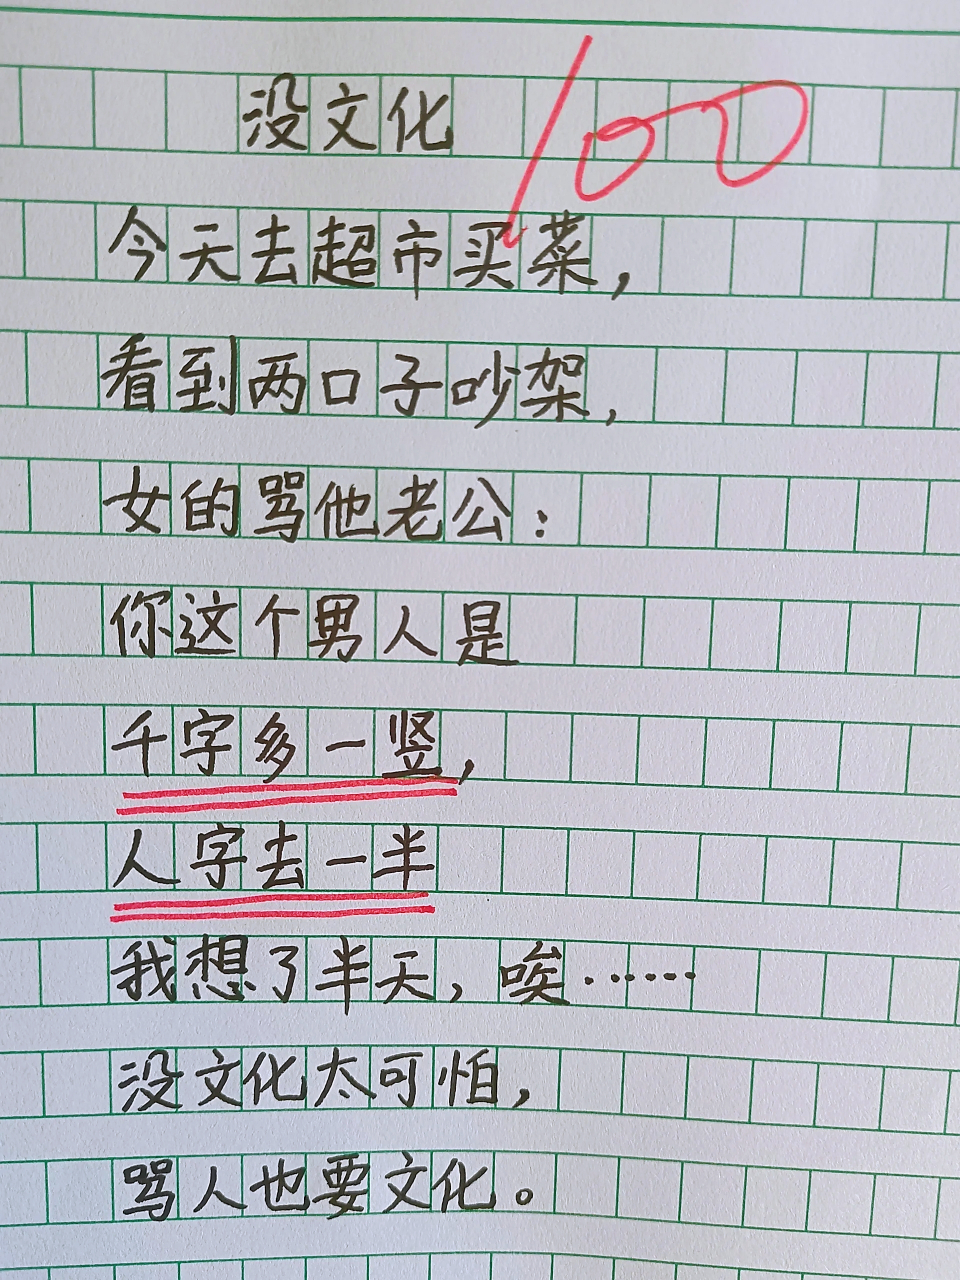 没文化
100
今天去超市买菜，
看到两口子吵架，
女的骂他老公：
你这个男人是
千字多一竖，
人字去一半
我想了半天，唉……
没文化太可怕，
骂人也要文化。